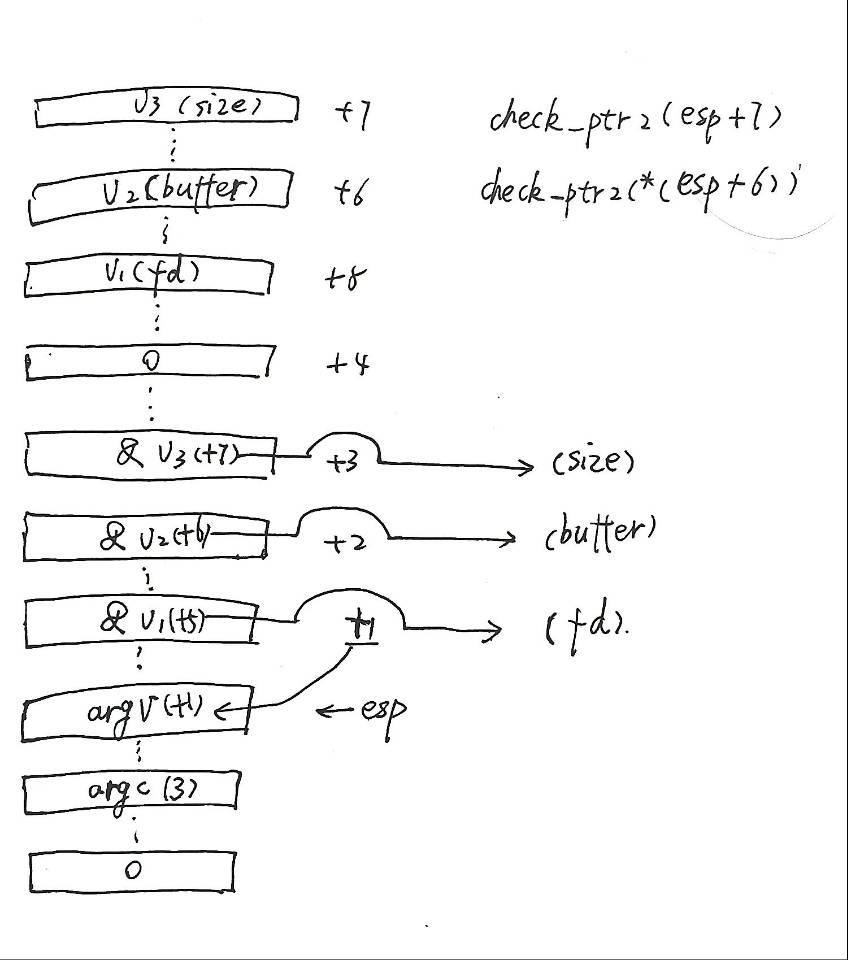 V3 (size) +7 check_ptr2(esp+7)
V2(butter) +6 check_ptr2(*(esp+6))
V1(fd) +8
0 +4
& V3(+7) +3 (size)
& V2(+6) +2 (butter)
& V1(+5) +1 (fd).
argV(+1) ← esp
argc(3)
0